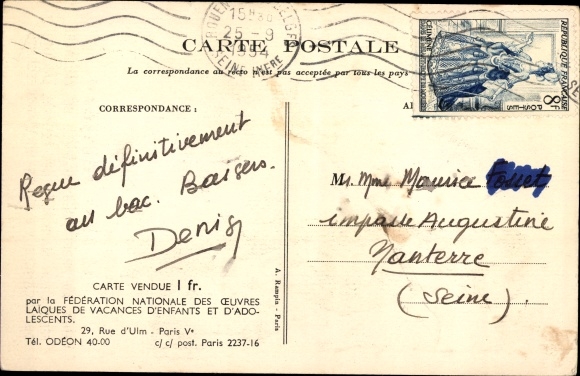 ROUEN
15H30
25-9
1954
SEINE INFRE
CARTE POSTALE
La correspondance au recto n'est pas acceptée par tous les pays
CELIMENE
REPUBLIQUE FRANÇAISE
8F
POSTES
CORRESPONDANCE :
Reçue définitivement
au bac. Baisers.
Denis
Mr. Mme Maurice
impasse Augustine
Nanterre
(Seine)
A. Rampin - Paris
CARTE VENDUE 1 fr.
par la FÉDÉRATION NATIONALE DES ŒUVRES
LAÏQUES DE VACANCES D'ENFANTS ET D'ADO-
LESCENTS.
29, Rue d'Ulm - Paris Ve
Tél. ODÉON 40-00 c/c post. Paris 2237-16